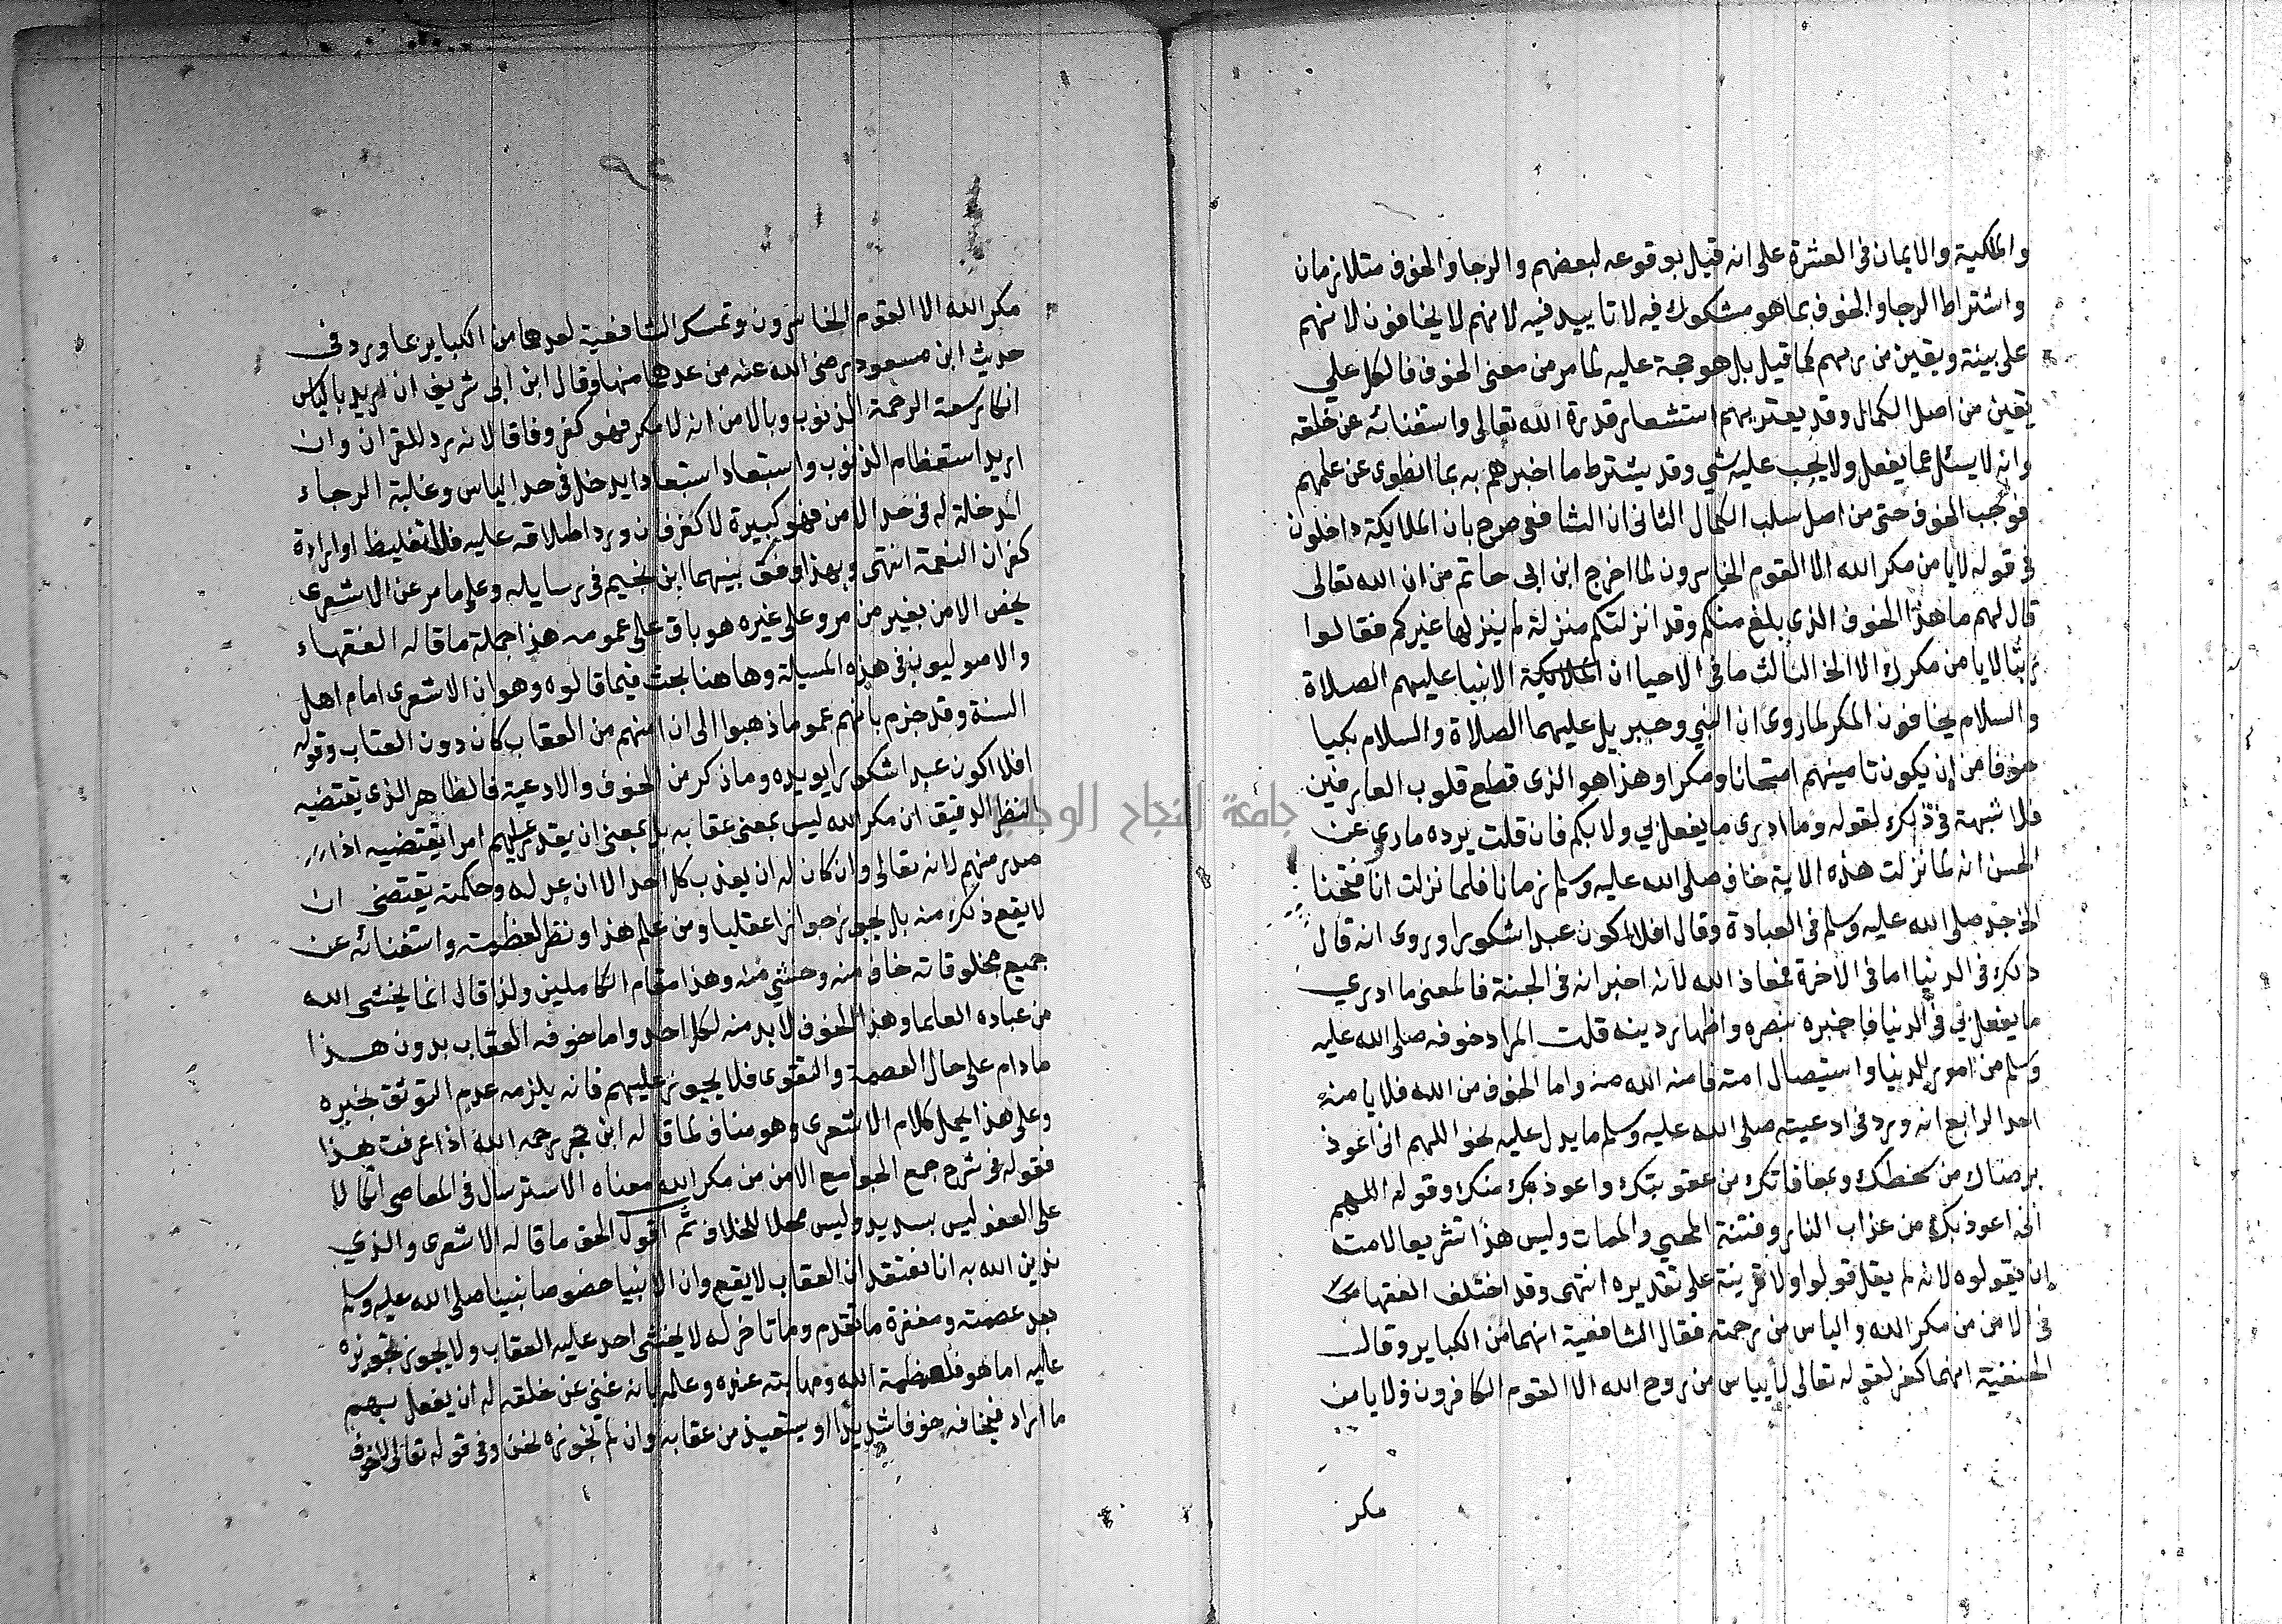 والملكية والايمان في العشرة على انه قيل بوقوعه لبعضهم والرجا والخوف متلازمان
واشتراط الرجا والخوف بما هو مشكوك فيه لا تاييد فيه لانهم لا يخافون لانهم
على بينة ويقين من ربهم كما قيل بل هو حجة عليه لما مر من معنى الخوف فالكل على
يقين من اصل الكمال وقد يعتريهم استشعار قدرة الله تعالى واستغنائه عن خلقه
وانه لا يسئل عما يفعل ولا يجب عليه شي وقد يشترط ما اخبرهم به بما انطوى عن علمهم
فوجب الخوف حتى من اصل سلب الكمال الثاني ان الشافعي صرح بان الملايكة داخلون
في قوله لا يامن مكر الله الا القوم الخاسرون لما اخرج ابن ابي حاتم من ان الله تعالى
قال لهم ما هذا الخوف الذي بلغ منكم وقد انزلتكم منزلة لم ينزلها غيركم فقالوا
ربنا لا يامن مكرك الا الخ الثالث ما في الاحيا ان الملايكة الانبيا عليهم الصلاة
والسلام يخافون المكر لما روى ان النبي وجبريل عليهما الصلاة والسلام بكيا
خوفا من ان يكون تامينهم امتحانا ومكرا وهذا هو الذى قطع قلوب العارفين
فلا شبهة في ذكره لقوله وما ادرى ما يفعل بي ولا بكم فان قلت يرده ما روي عن
الحسن انه لما نزلت هذه الاية خاف صلى الله عليه وسلم زمانا فلما نزلت انا فتحنا
الخ جد صلى الله عليه وسلم في العبادة وقال افلا اكون عبدا شكورا وروى انه قال
ذلك في الدنيا اما في الاخرة فمعاذ الله لانه اخبر انه في الجنة فالمعنى ما ادري
ما يفعل بي في الدنيا فاخبره بنصره واظهار دينه قلت المراد خوفه صلى الله عليه
وسلم من امور الدنيا واستيصال امته فامنه الله منه واما الخوف من الله فلا يامنه
احد الرابع انه ورد في ادعيته صلى الله عليه وسلم ما يدل عليه نحو اللهم اني اعوذ
برضاك من سخطك وبمعافاتك من عقوبتك واعوذ بك منك وقوله اللهم
اني اعوذ بك من عذاب النار وفتنة المحيي والممات وليس هذا تشريعا لامته
ان يقولوه لانه لم يقل قولوا ولا قرينة على تقديره انتهى وقد اختلف الفقها
في الامن من مكر الله والياس من رحمته فقال الشافعية انهما من الكباير وقالت
الحنفية انهما كفر لقوله تعالى لا يياس من روح الله الا القوم الكافرون ولا يامن
مكر
مكر الله الا القوم الخاسرون وتمسك الشافعية لعدهما من الكباير بما ورد في
حديث ابن مسعود رضى الله عنه من عدهما منها وقال ابن ابى شريف ان اريد بالياس
انكار سعة الرحمة الذنوب وبالامن انه لا مكر فهو كفر وفاقا لانه رد للقران وان
اريد استعظام الذنوب واستبعاد استبعادا يدخل في حد الياس وغلبة الرجاء
المدخلة له في حد الامن فهو كبيرة لا كفر فان ورد اطلاقه عليه فللتغليظ او ارادة
كفران النعمة انتهى وبهذا وفق بينهما ابن نجيم في رسايله وعلى ما مر عن الاشعرى
يخص الامن بغير من مر وعلى غيره هو باق على عمومه هذا جملة ما قاله الفقهاء
والاصوليون في هذه المسيلة وهاهنا بحث فيما قالوه وهو ان الاشعرى امام اهل
السنة وقد جزم بانهم عموما ذهبوا الى ان امنهم من العقاب كان دون العتاب وقوله
افلا اكون عبدا شكورا يويده وما ذكر من الخوف والادعية فالظاهر الذى يقتضيه
النظر الدقيق ان مكر الله ليس بمعنى عقابه بل بمعنى ان يقدر عليهم امرا يقتضيه اذا
صدر منهم لانه تعالى وان كان له ان يعذب كل احد الا ان عدله وحكمته يقتضى ان
لا يقع ذلك منه بل يجوز جوازا عقليا ومن علم هذا ونظر لعظمته واستغنائه عن
جميع مخلوقاته خاف منه وخشي منه وهذا مقام الكاملين ولذا قال انما يخشى الله
من عباده العلما وهذا الخوف لابد منه لكل احد واما خوفه العقاب بدون هذا
ما دام على حال العصمة والتقوى فلا يجوز عليهم فانه يلزمه عدم التوثق بخبره
وعلى هذا يحمل كلام الاشعرى وهو مناف لما قاله ابن حجر رحمه الله اذا عرفت هذا
فقوله في شرح جمع الجوامع الامن من مكر الله معناه الاسترسال في المعاصى اتكالا
على العفو ليس بسديد وليس محلا للخلاف ثم اقول الحق ما قاله الاشعرى والذي
ندين الله به انا نعتقد ان العقاب لا يقع وان الانبيا خصوصا نبينا صلى الله عليه وسلم
بعد عصمته ومغفرة ما تقدم وما تاخر له لا يخشى احد عليه العقاب ولا يجوز تجويزه
عليه اما هو فلعظمة الله ومهابته عنده وعلمه بانه غني عن خلقه له ان يفعل بهم
ما اراد فيخافه خوفا شديدا ويستعيذ من عقابه وان لم نجوزه نحن وفى قوله تعالى لاخوف